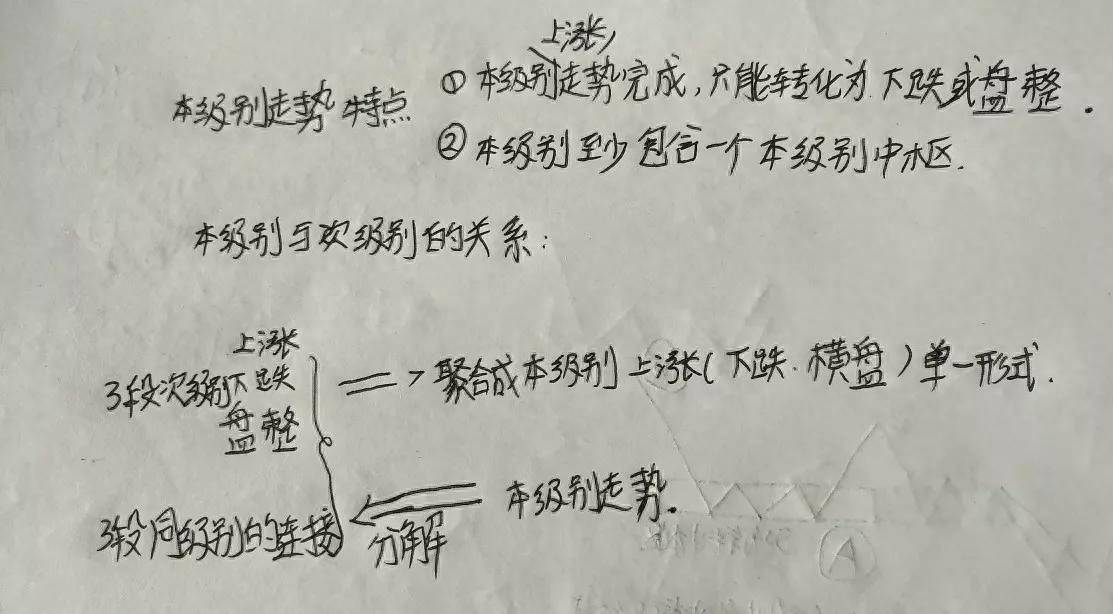 上涨
本级别走势特点 ① 本级别走势完成，只能转化为下跌或盘整.
② 本级别至少包含一个本级别中枢.
本级别与次级别的关系：
上涨
3段次级别下跌 => 聚合成本级别上涨(下跌.横盘)单一形式.
盘整
3段同级别的连接 <= 本级别走势.
分解
A